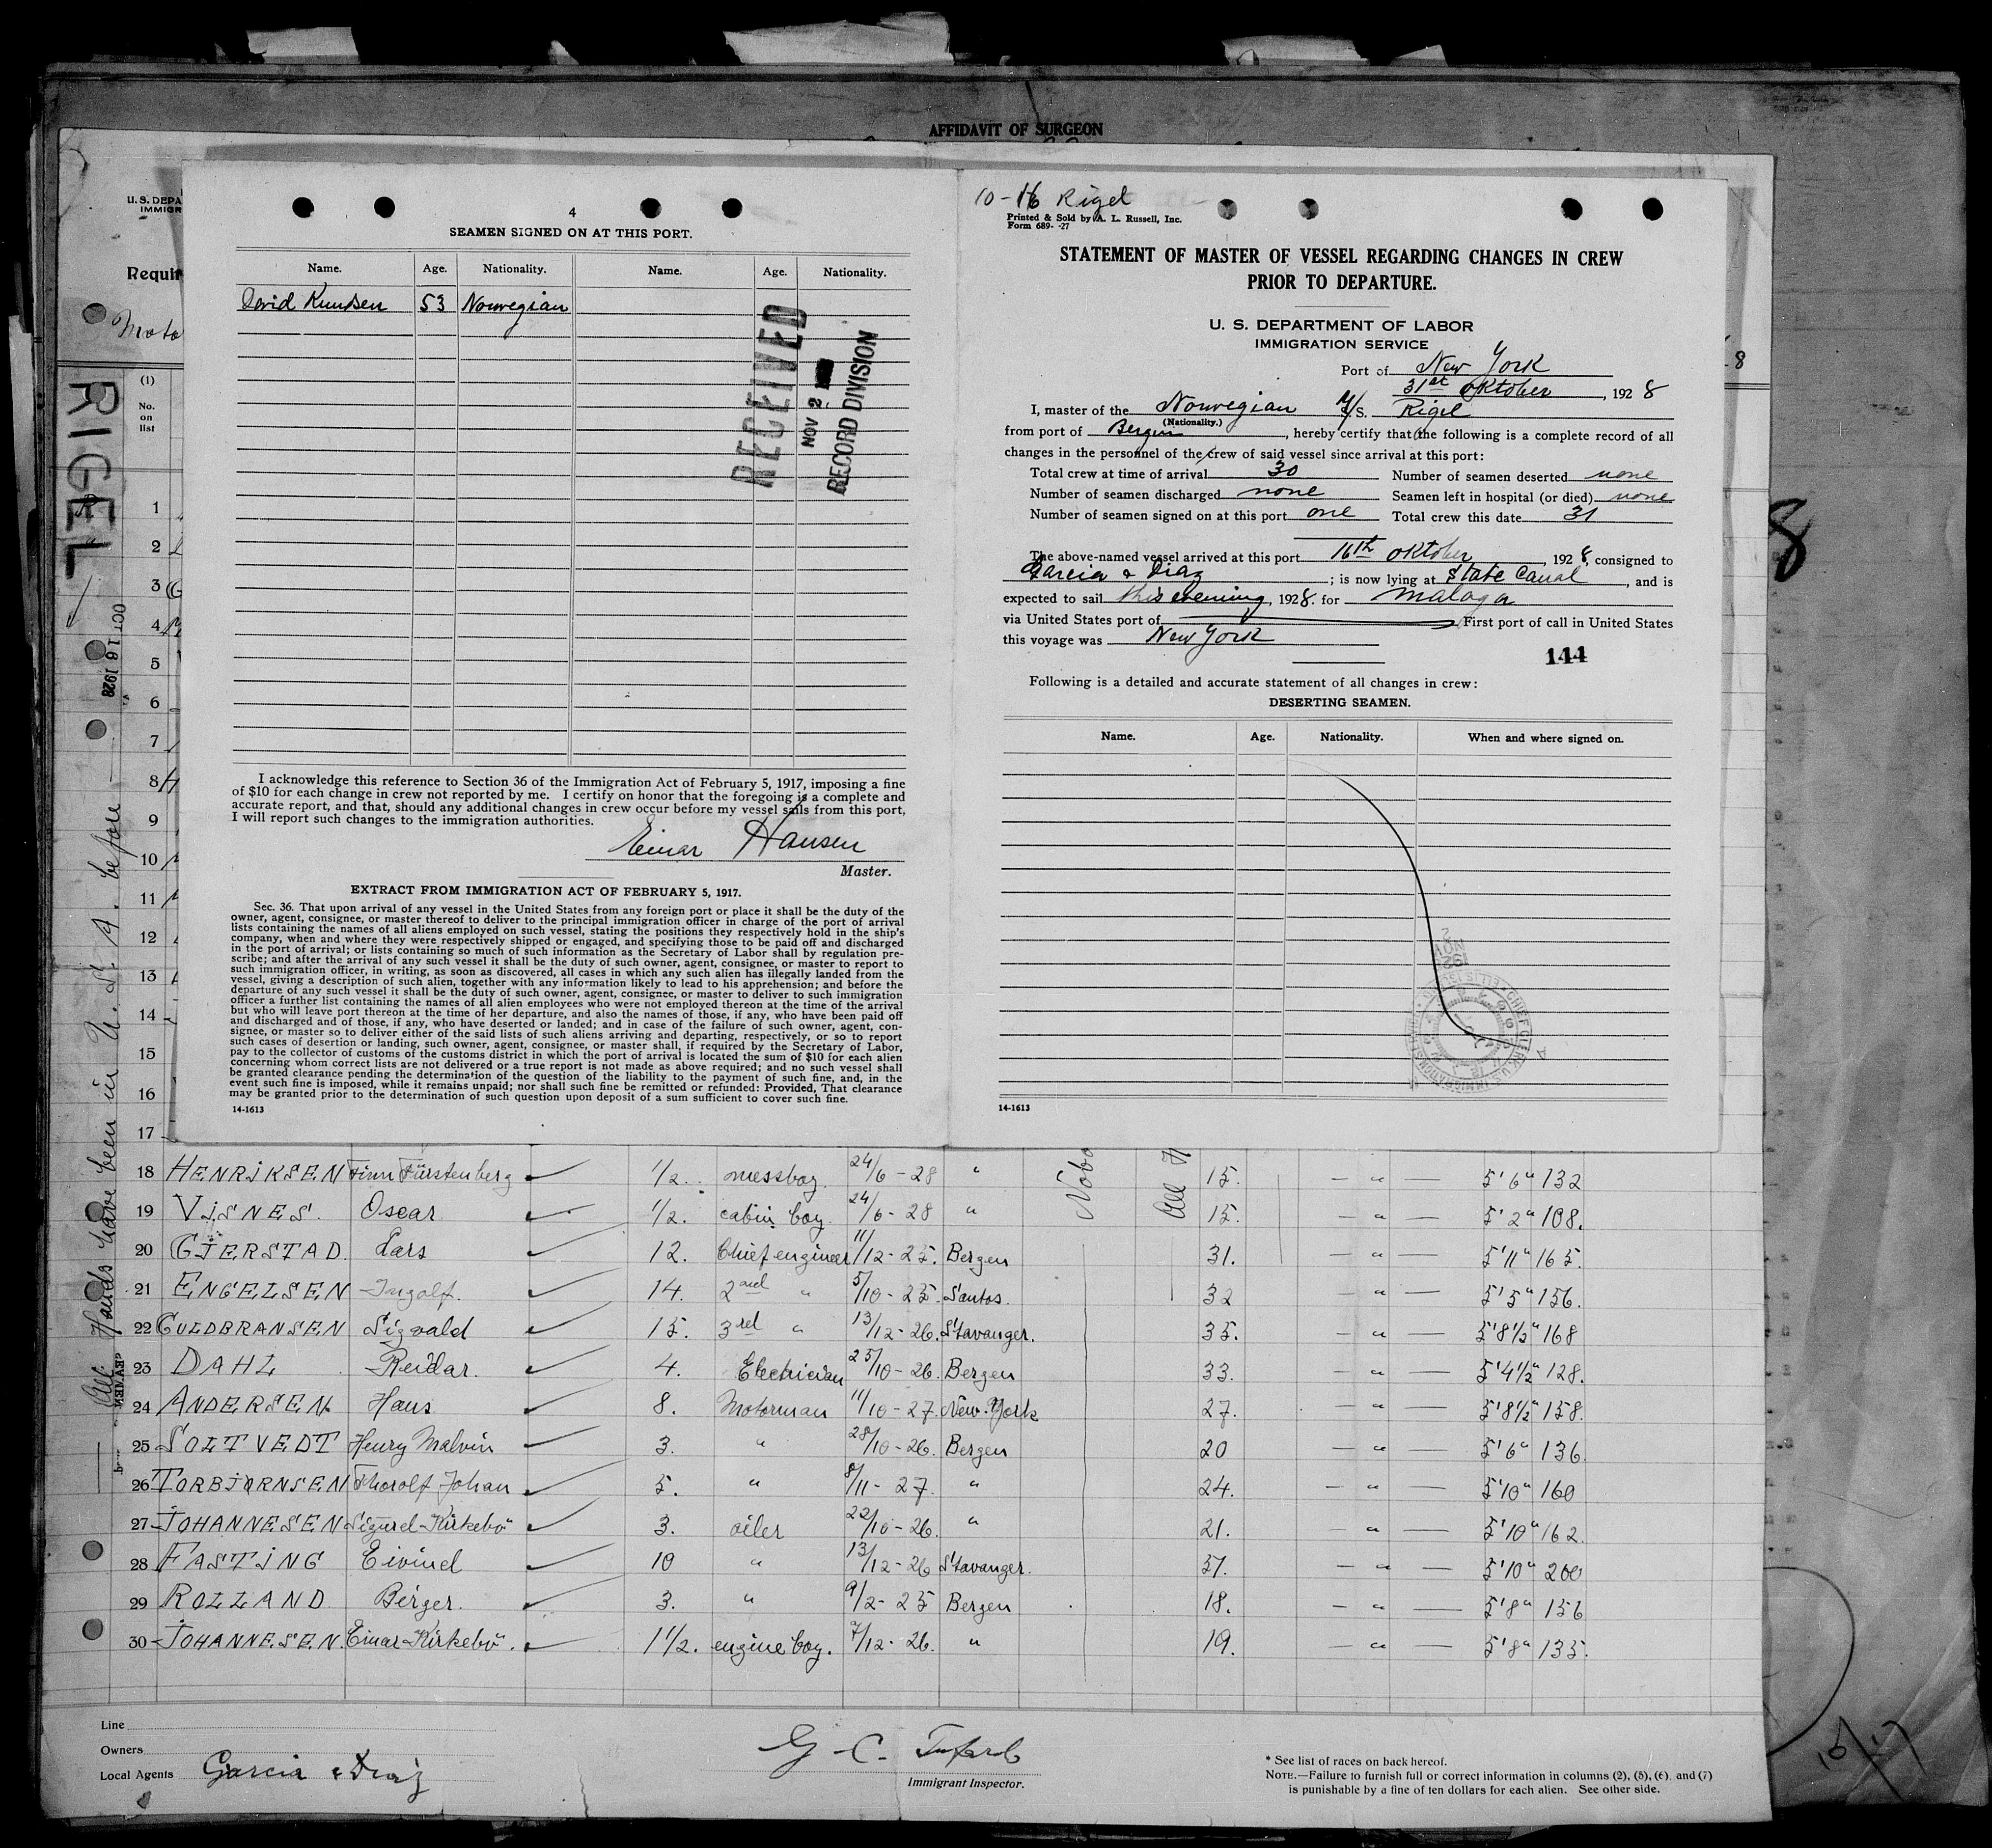 AFFIDAVIT OF SURGEON
U. S. DEPA
IMMIGR
Requir
Moto
(1)
No.
on
list
RIGEL
OCT 16 1928
All Hands have been in U. S. A. before
4
SEAMEN SIGNED ON AT THIS PORT.
Name. Age. Nationality. Name. Age. Nationality.
David Knudsen 53 Norwegian
RECEIVED
NOV 2
RECORD DIVISION
I acknowledge this reference to Section 36 of the Immigration Act of February 5, 1917, imposing a fine
of $10 for each change in crew not reported by me. I certify on honor that the foregoing is a complete and
accurate report, and that, should any additional changes in crew occur before my vessel sails from this port,
I will report such changes to the immigration authorities.
Einar Hansen
Master.
EXTRACT FROM IMMIGRATION ACT OF FEBRUARY 5, 1917.
Sec. 36. That upon arrival of any vessel in the United States from any foreign port or place it shall be the duty of the
owner, agent, consignee, or master thereof to deliver to the principal immigration officer in charge of the port of arrival
lists containing the names of all aliens employed on such vessel, stating the positions they respectively hold in the ship's
company, when and where they were respectively shipped or engaged, and specifying those to be paid off and discharged
in the port of arrival; or lists containing so much of such information as the Secretary of Labor shall by regulation pre-
scribe; and after the arrival of any such vessel it shall be the duty of such owner, agent, consignee, or master to report to
such immigration officer, in writing, as soon as discovered, all cases in which any such alien has illegally landed from the
vessel, giving a description of such alien, together with any information likely to lead to his apprehension; and before the
departure of any such vessel it shall be the duty of such owner, agent, consignee, or master to deliver to such immigration
officer a further list containing the names of all alien employees who were not employed thereon at the time of the arrival
but who will leave port thereon at the time of her departure, and also the names of those, if any, who have been paid off
and discharged and of those, if any, who have deserted or landed; and in case of the failure of such owner, agent, con-
signee, or master so to deliver either of the said lists of such aliens arriving and departing, respectively, or so to report
such cases of desertion or landing, such owner, agent, consignee, or master shall, if required by the Secretary of Labor,
pay to the collector of customs of the customs district in which the port of arrival is located the sum of $10 for each alien
concerning whom correct lists are not delivered or a true report is not made as above required; and no such vessel shall
be granted clearance pending the determination of the question of the liability to the payment of such fine, and, in the
event such fine is imposed, while it remains unpaid; nor shall such fine be remitted or refunded: Provided, That clearance
may be granted prior to the determination of such question upon deposit of a sum sufficient to cover such fine.
14-1613
10-16 Rigel
Printed & Sold by A. L. Russell, Inc.
Form 689- -27
STATEMENT OF MASTER OF VESSEL REGARDING CHANGES IN CREW
PRIOR TO DEPARTURE.
U. S. DEPARTMENT OF LABOR
IMMIGRATION SERVICE
Port of New York
31st Oktober, 1928
I, master of the Norwegian M/S. Rigel
(Nationality.)
from port of Bergen, hereby certify that the following is a complete record of all
changes in the personnel of the crew of said vessel since arrival at this port:
Total crew at time of arrival 30 Number of seamen deserted none
Number of seamen discharged none Seamen left in hospital (or died) none
Number of seamen signed on at this port one Total crew this date 31
The above-named vessel arrived at this port 16th oktober, 1928, consigned to
Garcia & Diaz; is now lying at State Canal, and is
expected to sail this evening, 1928. for Malaga
via United States port of First port of call in United States
this voyage was New York
144
Following is a detailed and accurate statement of all changes in crew:
DESERTING SEAMEN.
Name. Age. Nationality. When and where signed on.
14-1613
1
2
3
4
5
6
7
8
9
10
11
12
13
14
15
16
17
18 HENRIKSEN Finn Fürstenberg 1/2. messboy 24/6-28 " 15. — " — 5'6" 132
19 VISNES. Oscar 1/2. cabin boy 24/6-28 " 15. — " — 5'2" 108.
20 GJERSTAD. Lars 12. Chief engineer 11/12-25. Bergen 31. — " — 5'11" 165.
21 ENGELSEN Ingolf. 14. 2nd " 5/10-25. Santos. 32 — " — 5'5" 156.
22 GULDBRANSEN Sigvald 15. 3rd " 13/12-26. Stavanger. 35. — " — 5'8½" 168
23 DAHL Reidar. 4. Electrician 25/10-26. Bergen 33. — " — 5'4½" 128.
24 ANDERSEN Hans 8. Motorman 11/10-27. New-York 27. — " — 5'8½" 158.
25 SOLTVEDT Henry Malvin 3. " 28/10-26. Bergen 20 — " — 5'6" 136
26 TORBJØRNSEN Thorolf Johan 5. " 8/11-27. " 24. — " — 5'10" 160
27 JOHANNESEN Sigurd-Kirkebö 3. oiler 22/10-26. " 21. — " — 5'10" 162.
28 FASTING Eivind 10 " 13/12-26 Stavanger. 37. — " — 5'10" 200
29 ROLLAND Birger. 3. " 9/2-25 Bergen 18. — " — 5'8" 156
30 JOHANNESEN. Einar-Kirkebö. 1 1/2. engine boy. 7/12-26. " 19. — " — 5'8" 135.
Line
Owners
Local Agents Garcia & Diaz
Immigrant Inspector.
* See list of races on back hereof.
NOTE.—Failure to furnish full or correct information in columns (2), (5), (6) and (7)
is punishable by a fine of ten dollars for each alien. See other side.
10/17